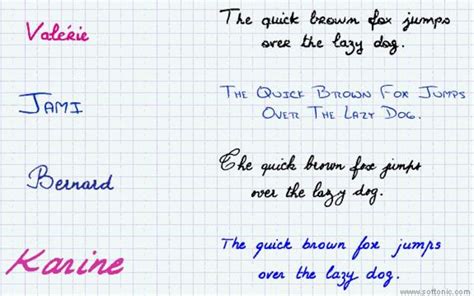 Valérie
The quick brown fox jumps
over the lazy dog.
JAMI
THE QUICK BROWN FOX JUMPS
OVER THE LAZY DOG.
Bernard
The quick brown fox jumps
over the lazy dog.
Karine
The quick brown fox jumps
over the lazy dog.
www.softonic.com